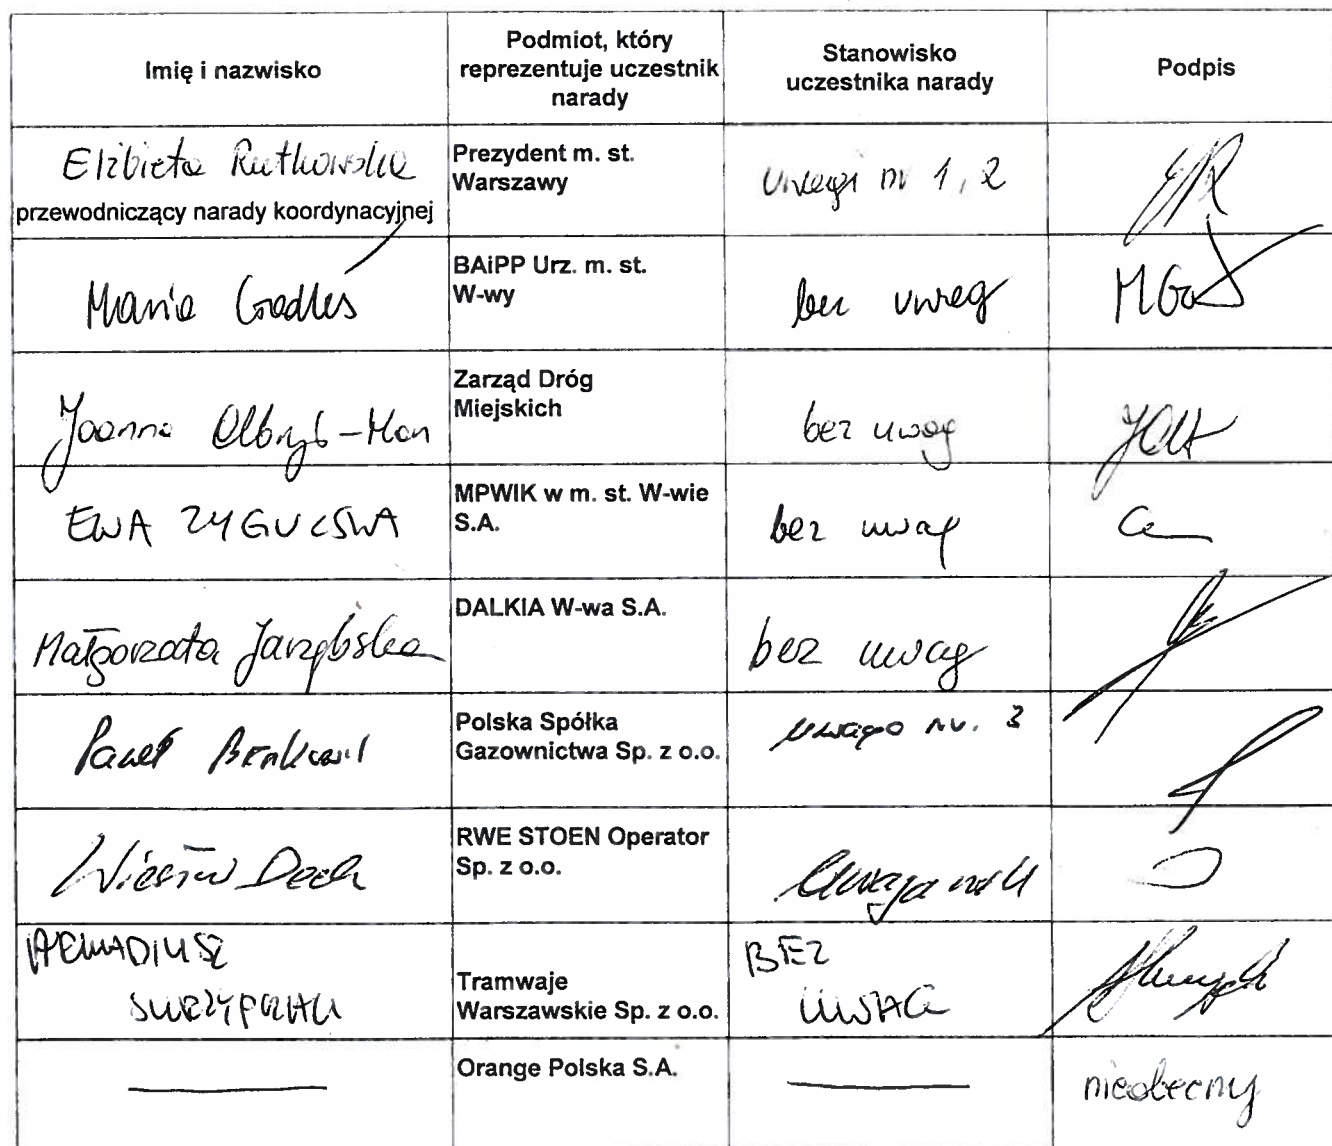 Imię i nazwisko
Podmiot, który
reprezentuje uczestnik
narady
Stanowisko
uczestnika narady
Podpis
Elżbieta Rutkowska
przewodniczący narady koordynacyjnej
Prezydent m. st.
Warszawy
uwagi nr 1, 2
Maria
BAiPP Urz. m. st.
W-wy
bez uwag
Joanna
Zarząd Dróg
Miejskich
bez uwag
EWA
MPWIK w m. st. W-wie
S.A.
bez uwag
Małgorzata
DALKIA W-wa S.A.
bez uwag
Paweł
Polska Spółka
Gazownictwa Sp. z o.o.
uwaga nr. 3
Wiesław Dech
RWE STOEN Operator
Sp. z o.o.
Uwaga nr 4
ARKADIUSZ
Tramwaje
Warszawskie Sp. z o.o.
BEZ
UWAG
Orange Polska S.A.
nieobecny